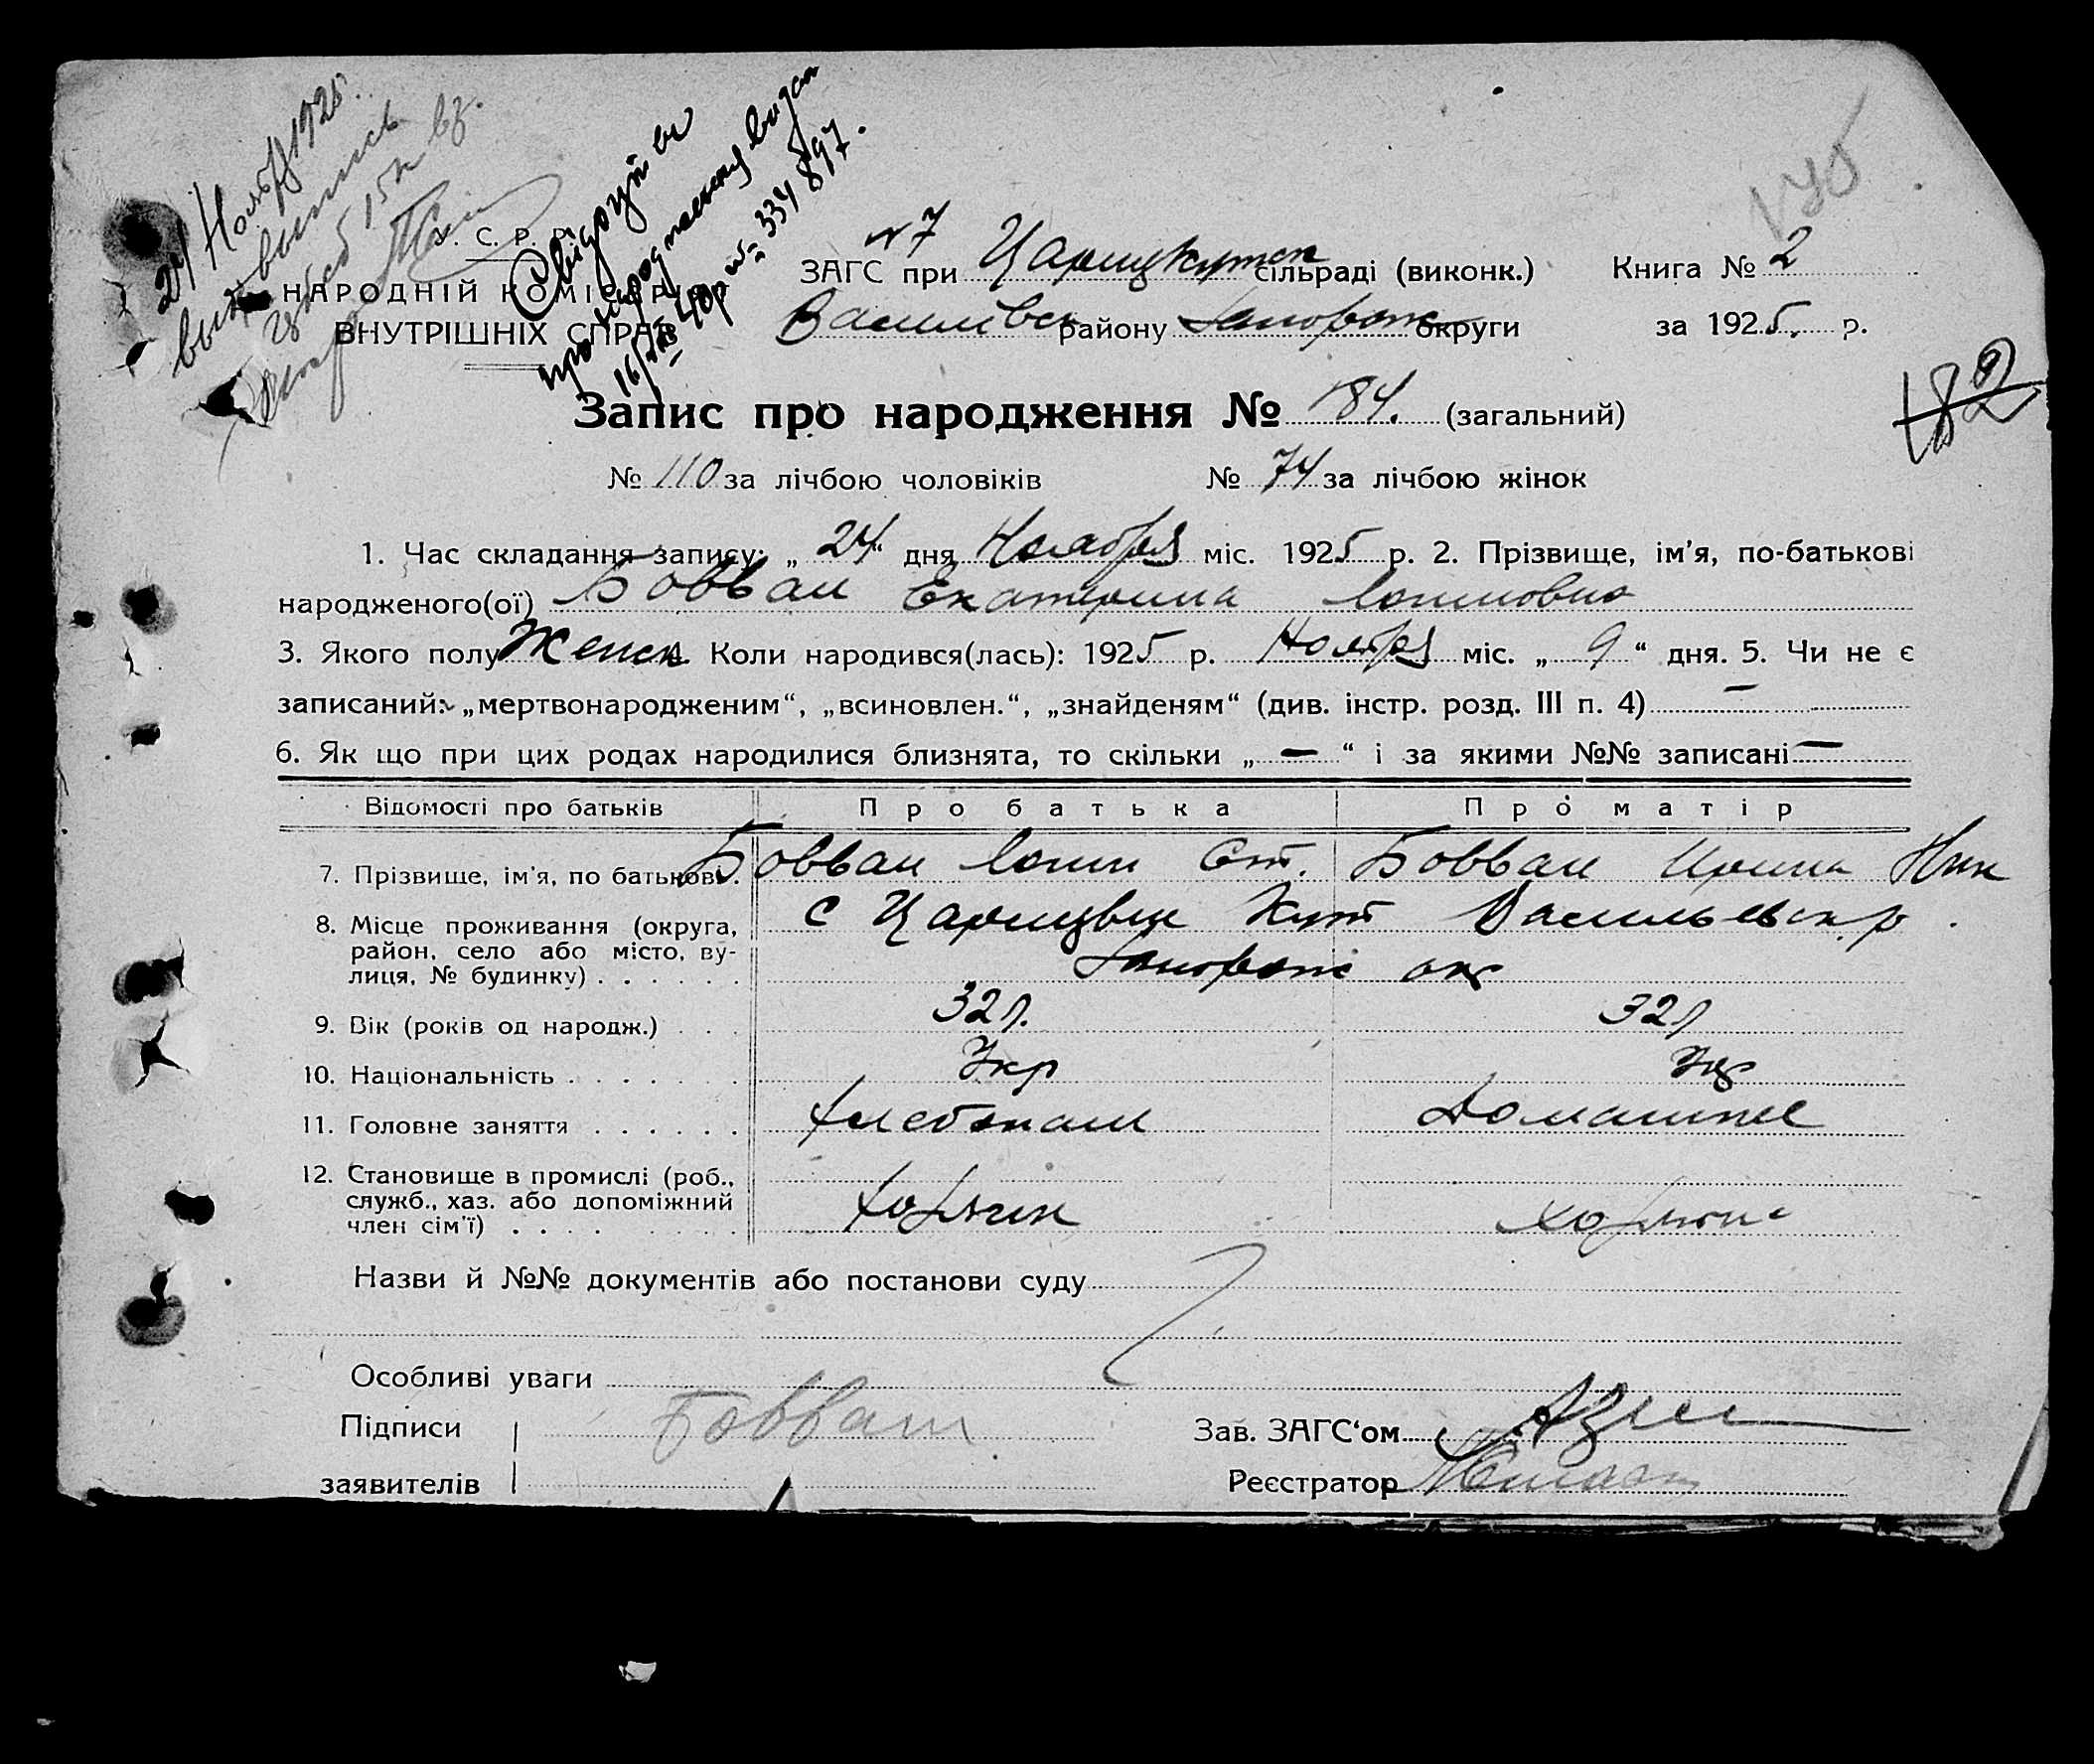 24 Ноября 1925.
У. С. Р. Р.
НАРОДНІЙ КОМІСАРІЯТ
ВНУТРІШНІХ СПРАВ
видан
16/ 40р № 334897.
№7
ЗАГС при Царицкутск сільраді (виконк.) Книга № 2
Василівск району Запорожск округи за 1925. р.
182
Запис про народження № 184. (загальний)
№ 110 за лічбою чоловіків № 74 за лічбою жінок
1. Час складання запису: „ 24 “ дня Ноября міс. 1925 р. 2. Прізвище, ім’я, по-батькові
народженого(ої) Бовван Екатерина
3. Якого полу Женск Коли народився(лась): 1925 р. Ноября міс. „ 9 “ дня. 5. Чи не є
записаний: „мертвонародженим“, „всиновлен.“, „знайденям“ (див. інстр. розд. III п. 4) —
6. Як що при цих родах народилися близнята, то скільки „ — “ і за якими №№ записані —
Відомості про батьків Про батька Про матір
7. Прізвище, ім’я, по батькові . Бовван Ст. Бовван Ирина Ник
8. Місце проживання (округа,
район, село або місто, ву-
лиця, № будинку) . . . . . .
с Царицын Кут Васильевск р.
окр
9. Вік (років од народж.) . . . 32 л. 32 л
10. Національність . . . . . . . Укр Укр
11. Головне заняття . . . . . . Хлебопаш Домашнее
12. Становище в промислі (роб.,
служб., хаз. або допоміжний
член сім’ї) . . . .
Хозяин Хозяйка
Назви й №№ документів або постанови суду
Особливі уваги
Підписи Бовван Зав. ЗАГС‘ом
заявителів Реєстратор